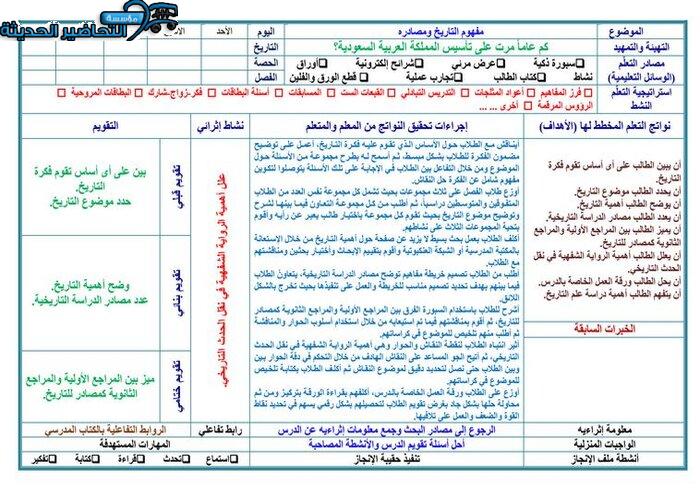 مؤسسة
التحاضير الحديثة
الموضوع
مفهوم التاريخ ومصادره
اليوم
الأحد
التهيئة والتمهيد
كم عاماً مرت على تأسيس المملكة العربية السعودية؟
التاريخ
مصادر التعلم
سبورة ذكية
عرض مرئي
شرائح إلكترونية
أوراق
الحصة
(الوسائل التعليمية)
نشاط
كتاب الطالب
تجارب عملية
قطع الورق والفلين
الفصل
استراتيجية التعلم
فرز المفاهيم
أعواد المثلجات
التدريس التبادلي
القبعات الست
المسابقات
أسئلة البطاقات
فكر-زواج-شارك
البطاقات المروحية
النشط
الرؤوس المرقمة
أخرى ... ...
نواتج التعلم المخطط لها (الأهداف)
إجراءات تحقيق النواتج من المعلم والمتعلم
نشاط إثرائي
التقويم
أن يبين الطالب على أى أساس تقوم فكرة
التاريخ.
أن يحدد الطالب موضوع التاريخ.
أن يوضح الطالب أهمية التاريخ.
أن يعدد الطالب مصادر الدراسة التاريخية.
أن يميز الطالب بين المراجع الأولية والمراجع
الثانوية كمصادر للتاريخ.
أن يعلل الطالب أهمية الرواية الشفهية في نقل
الحدث التاريخي.
أن يحل الطالب ورقة العمل الخاصة بالدرس.
أن يتفهم الطالب أهمية دراسة علم التاريخ.
الخبرات السابقة
أناقش مع الطلاب حول الأساس الذي تقوم عليه فكرة التاريخ، أعمل على توضيح
مضمون الفكرة للطلاب بشكل مبسط، ثم أسمح له بطرح مجموعة من الأسئلة حول
الموضوع ومن خلال التفاعل بين الطلاب في الاجابة على تلك الأسئلة يتوصلوا لتكوين
مفهوم شامل عن الفكرة حل النقاش.
أوزع طلاب الفصل على ثلاث مجموعات بحيث تشمل كل مجموعة نفس العدد من الطلاب
المتفوقين والمتوسطين دراسياً، ثم أطلب من كل مجموعة التعاون فيما بينها لشرح
وتوضيح موضوع التاريخ بحيث تقوم كل مجموعة باختيار طالب يعبر عن رأيه وأقوم
بتحية المجموعات الثلاث على نشاطهم.
أكلف الطلاب بعمل بحث بسيط لا يزيد عن صفحة حول أهمية التاريخ من خلال الاستعانة
بالمكتبة المدرسية أو الشبكة العنكبوتية وأقوم بتقييم الابحاث وأختبار بحثين ومناقشتهم
مع الطلاب.
أطلب من الطلاب تصميم خريطة مفاهيم توضح مصادر الدراسة التاريخية، يتعاون الطلاب
فيما بينهم بهدف تحديد تصميم مناسب للخريطة والعمل على تنفيذها بحيث تخرج بالشكل
اللائق.
أشرح للطلاب باستخدام السبورة الفرق بين المراجع الأولية والمراجع الثانوية كمصادر
للتاريخ، ثم أقوم بمناقشتهم فيما تم استيعابه من خلال استخدام أسلوب الحوار والمناقشة
ثم أطلب منهم تلخيص للموضوع في كراساتهم.
أثير انتباه الطلاب لنقطة النقاش والحوار وهي أهمية الرواية الشفهية في نقل الحدث
التاريخي، ثم أتيح الجو المساعد على النقاش الهادف من خلال التحكم في دفة الحوار بين
وبين الطلاب حتى نصل لتحديد دقيق لموضوع النقاش ثم أكلف الطلاب بكتابة تلخيص
للموضوع في كراساتهم.
أوزع على الطلاب ورق العمل الخاصة بالدرس، أكلفهم بقراءة الورقة بتركيز ومن ثم
محاولة حلها بشكل جاد بغرض تقويم الطلاب لتحصيلهم بشكل رقمي يسهم في تحديد نقاط
القوة والضعف والعمل على تلافيها.
علل أهمية الرواية الشفهية في نقل الحدث التاريخي.
تقويم قبلي
بين على أى أساس تقوم فكرة
التاريخ.
حدد موضوع التاريخ.
تقويم بنائي
وضح أهمية التاريخ.
عدد مصادر الدراسة التاريخية.
تقويم ختامي
ميز بين المراجع الأولية والمراجع
الثانوية كمصادر للتاريخ.
معلومة إثراءيه
الرجوع إلى مصادر البحث وجمع معلومات إثراءيه عن الدرس
رابط تفاعلي
الروابط التفاعلية بالكتاب المدرسي
الواجبات المنزلية
أحل أسئلة تقويم الدرس والأنشطة المصاحبة
المهارات المستهدفة
أنشطة ملف الإنجاز
تنفيذ حقيبة الإنجاز
استماع
تحدث
قراءة
كتابة
تفكير